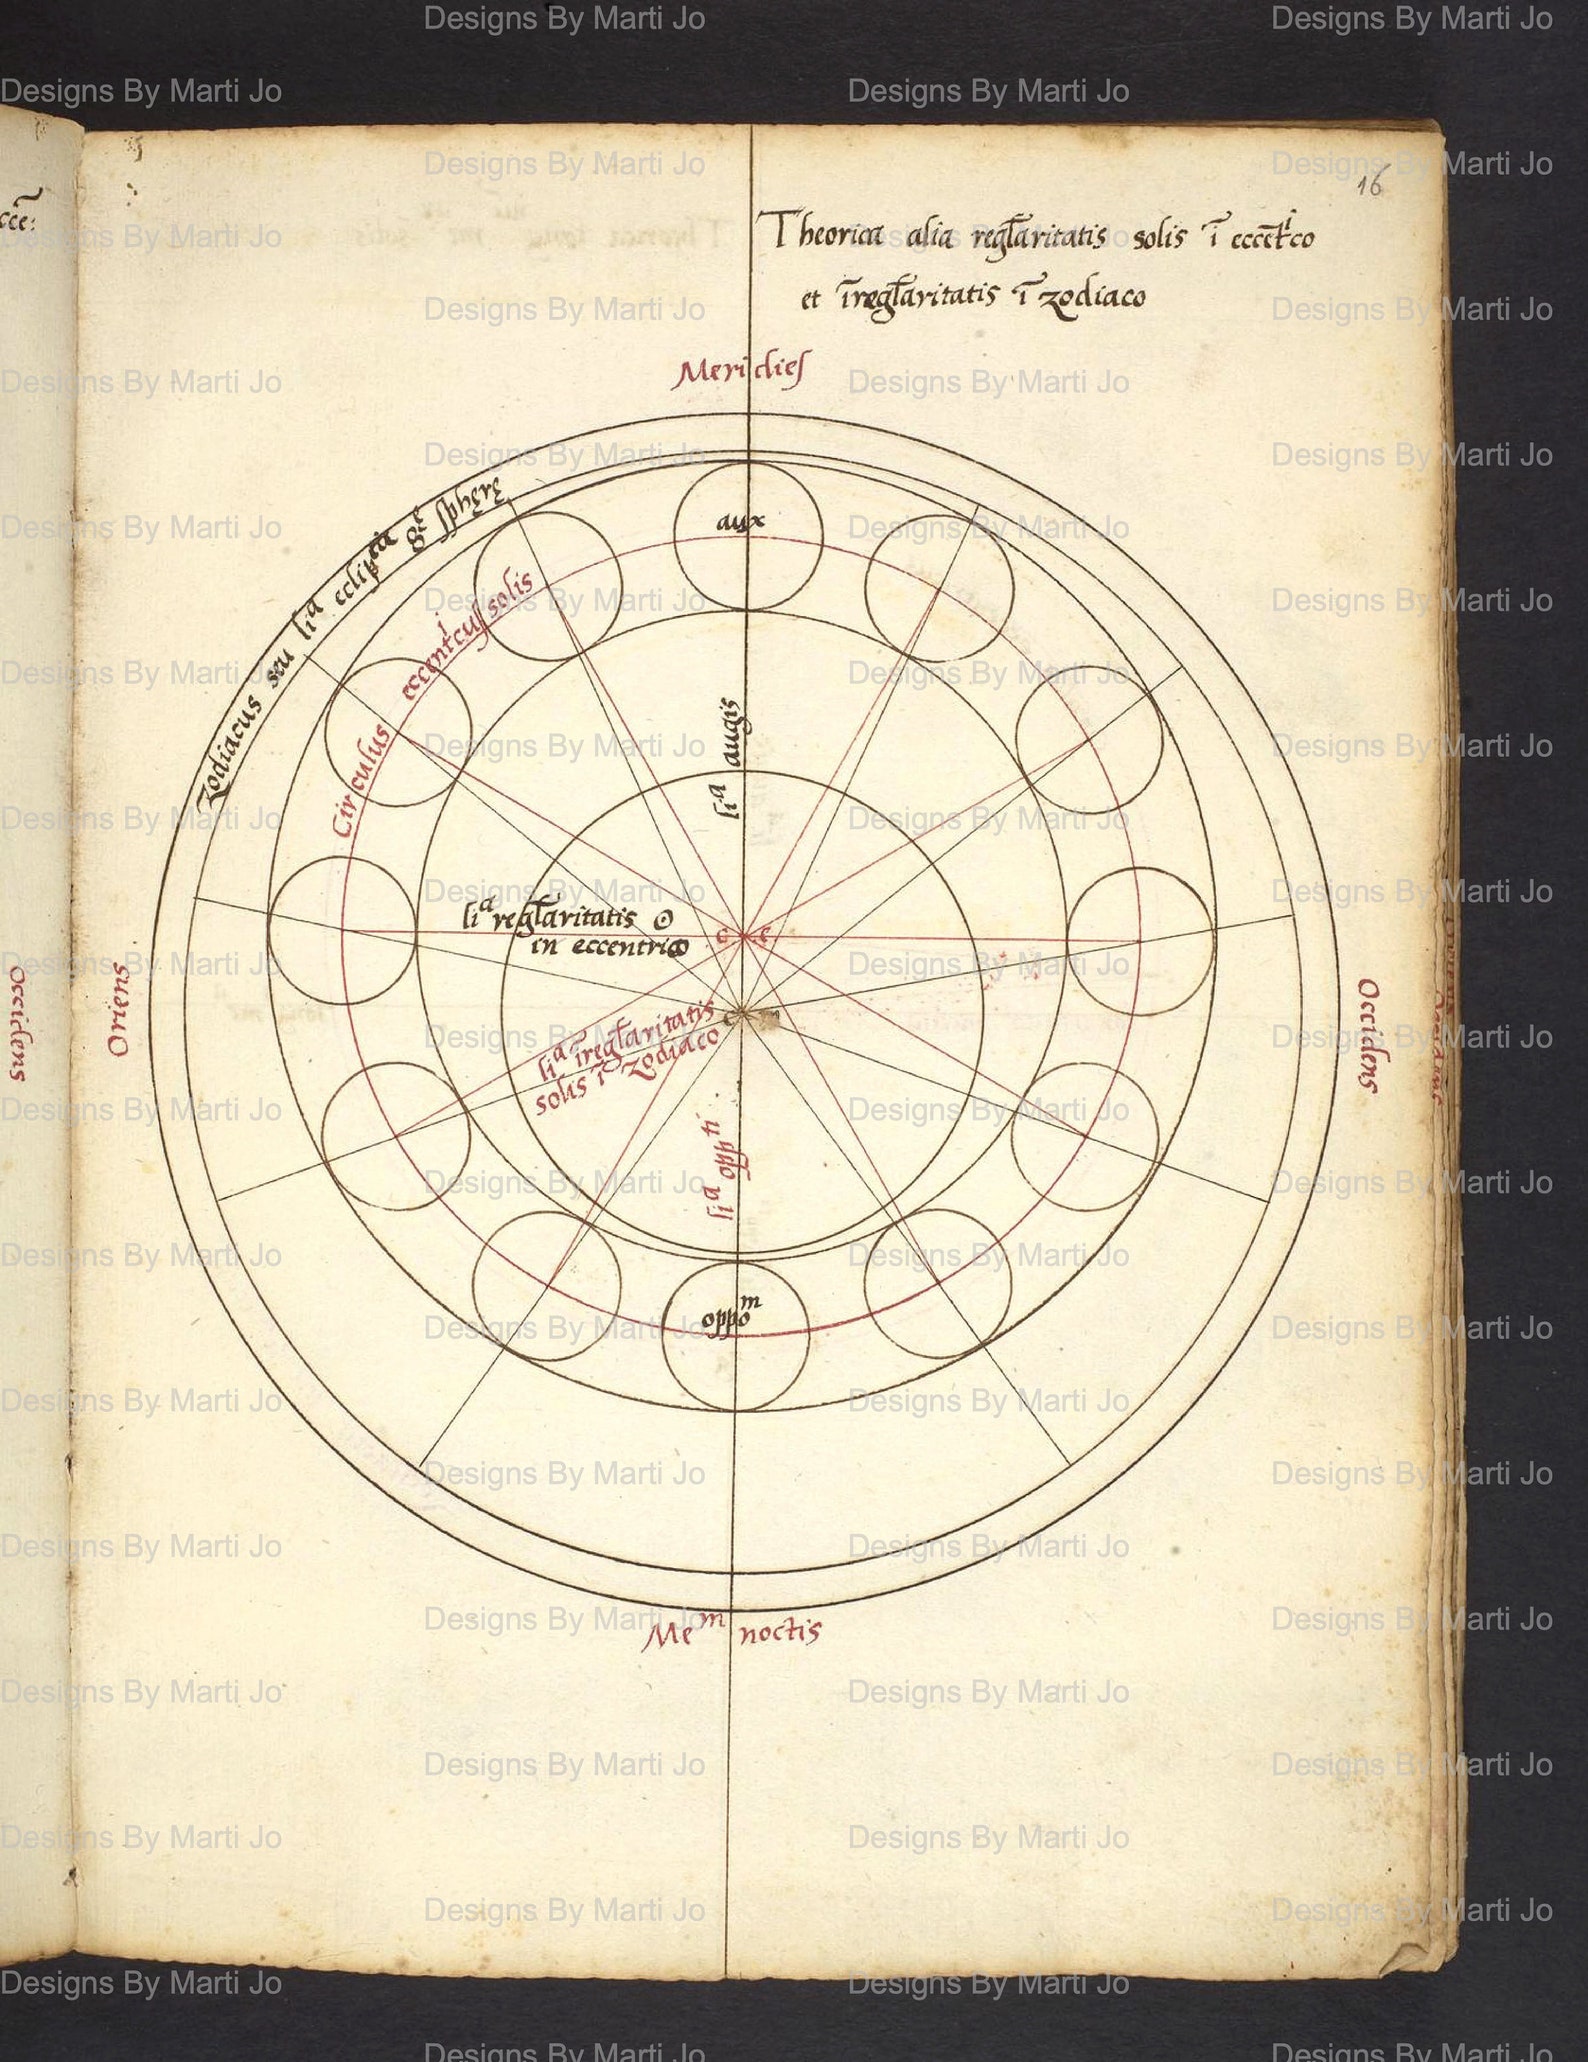 16
Theorica alia regl̄aritatis solis ī eccēt͛ico
et īregl̄aritatis ī zodiaco
Meridies
zodiacus seu liᵃ eclipᵗⁱᶜᵃ 8ᵉ sphęrę
aux
Circulus eccentⁱcus solis
liᵃ augis
liᵃ regl̄aritatis ☉
in eccentrico
c e
liᵃ īregl̄aritatis
solis ī zodiaco
liᵃ oppᵗⁱ
oppoᵐ
Oriens
Occidens
Occidens
Meᵐ noctis
Designs By Marti Jo